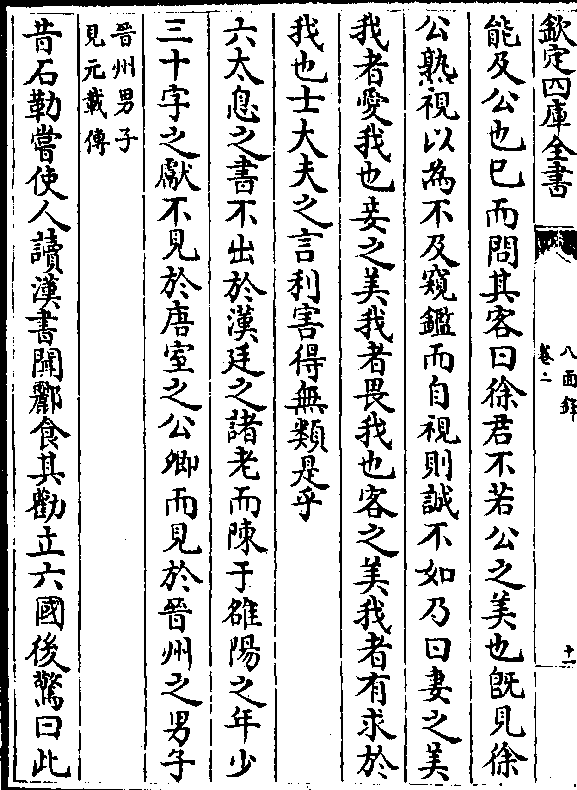 欽定四庫全書
八面鋒
卷二
十一
能及公也已而問其客曰徐君不若公之美也旣見徐
公熟視以為不及窺鑑而自視則誠不如乃曰妻之美
我者愛我也妾之美我者畏我也客之美我者有求於
我也士大夫之言利害得無類是乎
六太息之書不出於漢廷之諸老而陳于雒陽之年少
三十字之獻不見於唐室之公卿而見於晉州之男子
晉州男子
見元載傳
昔石勒嘗使人讀漢書聞酈食其勸立六國後驚曰此